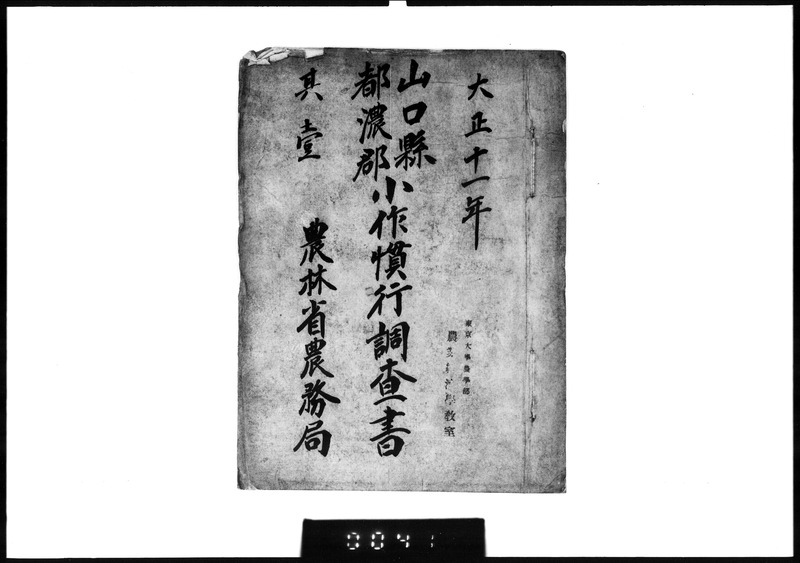 大正十一年
山口縣
都濃郡
小作慣行調査書
其壹
農林省農務局
東京大學農學部
農 學教室
0041